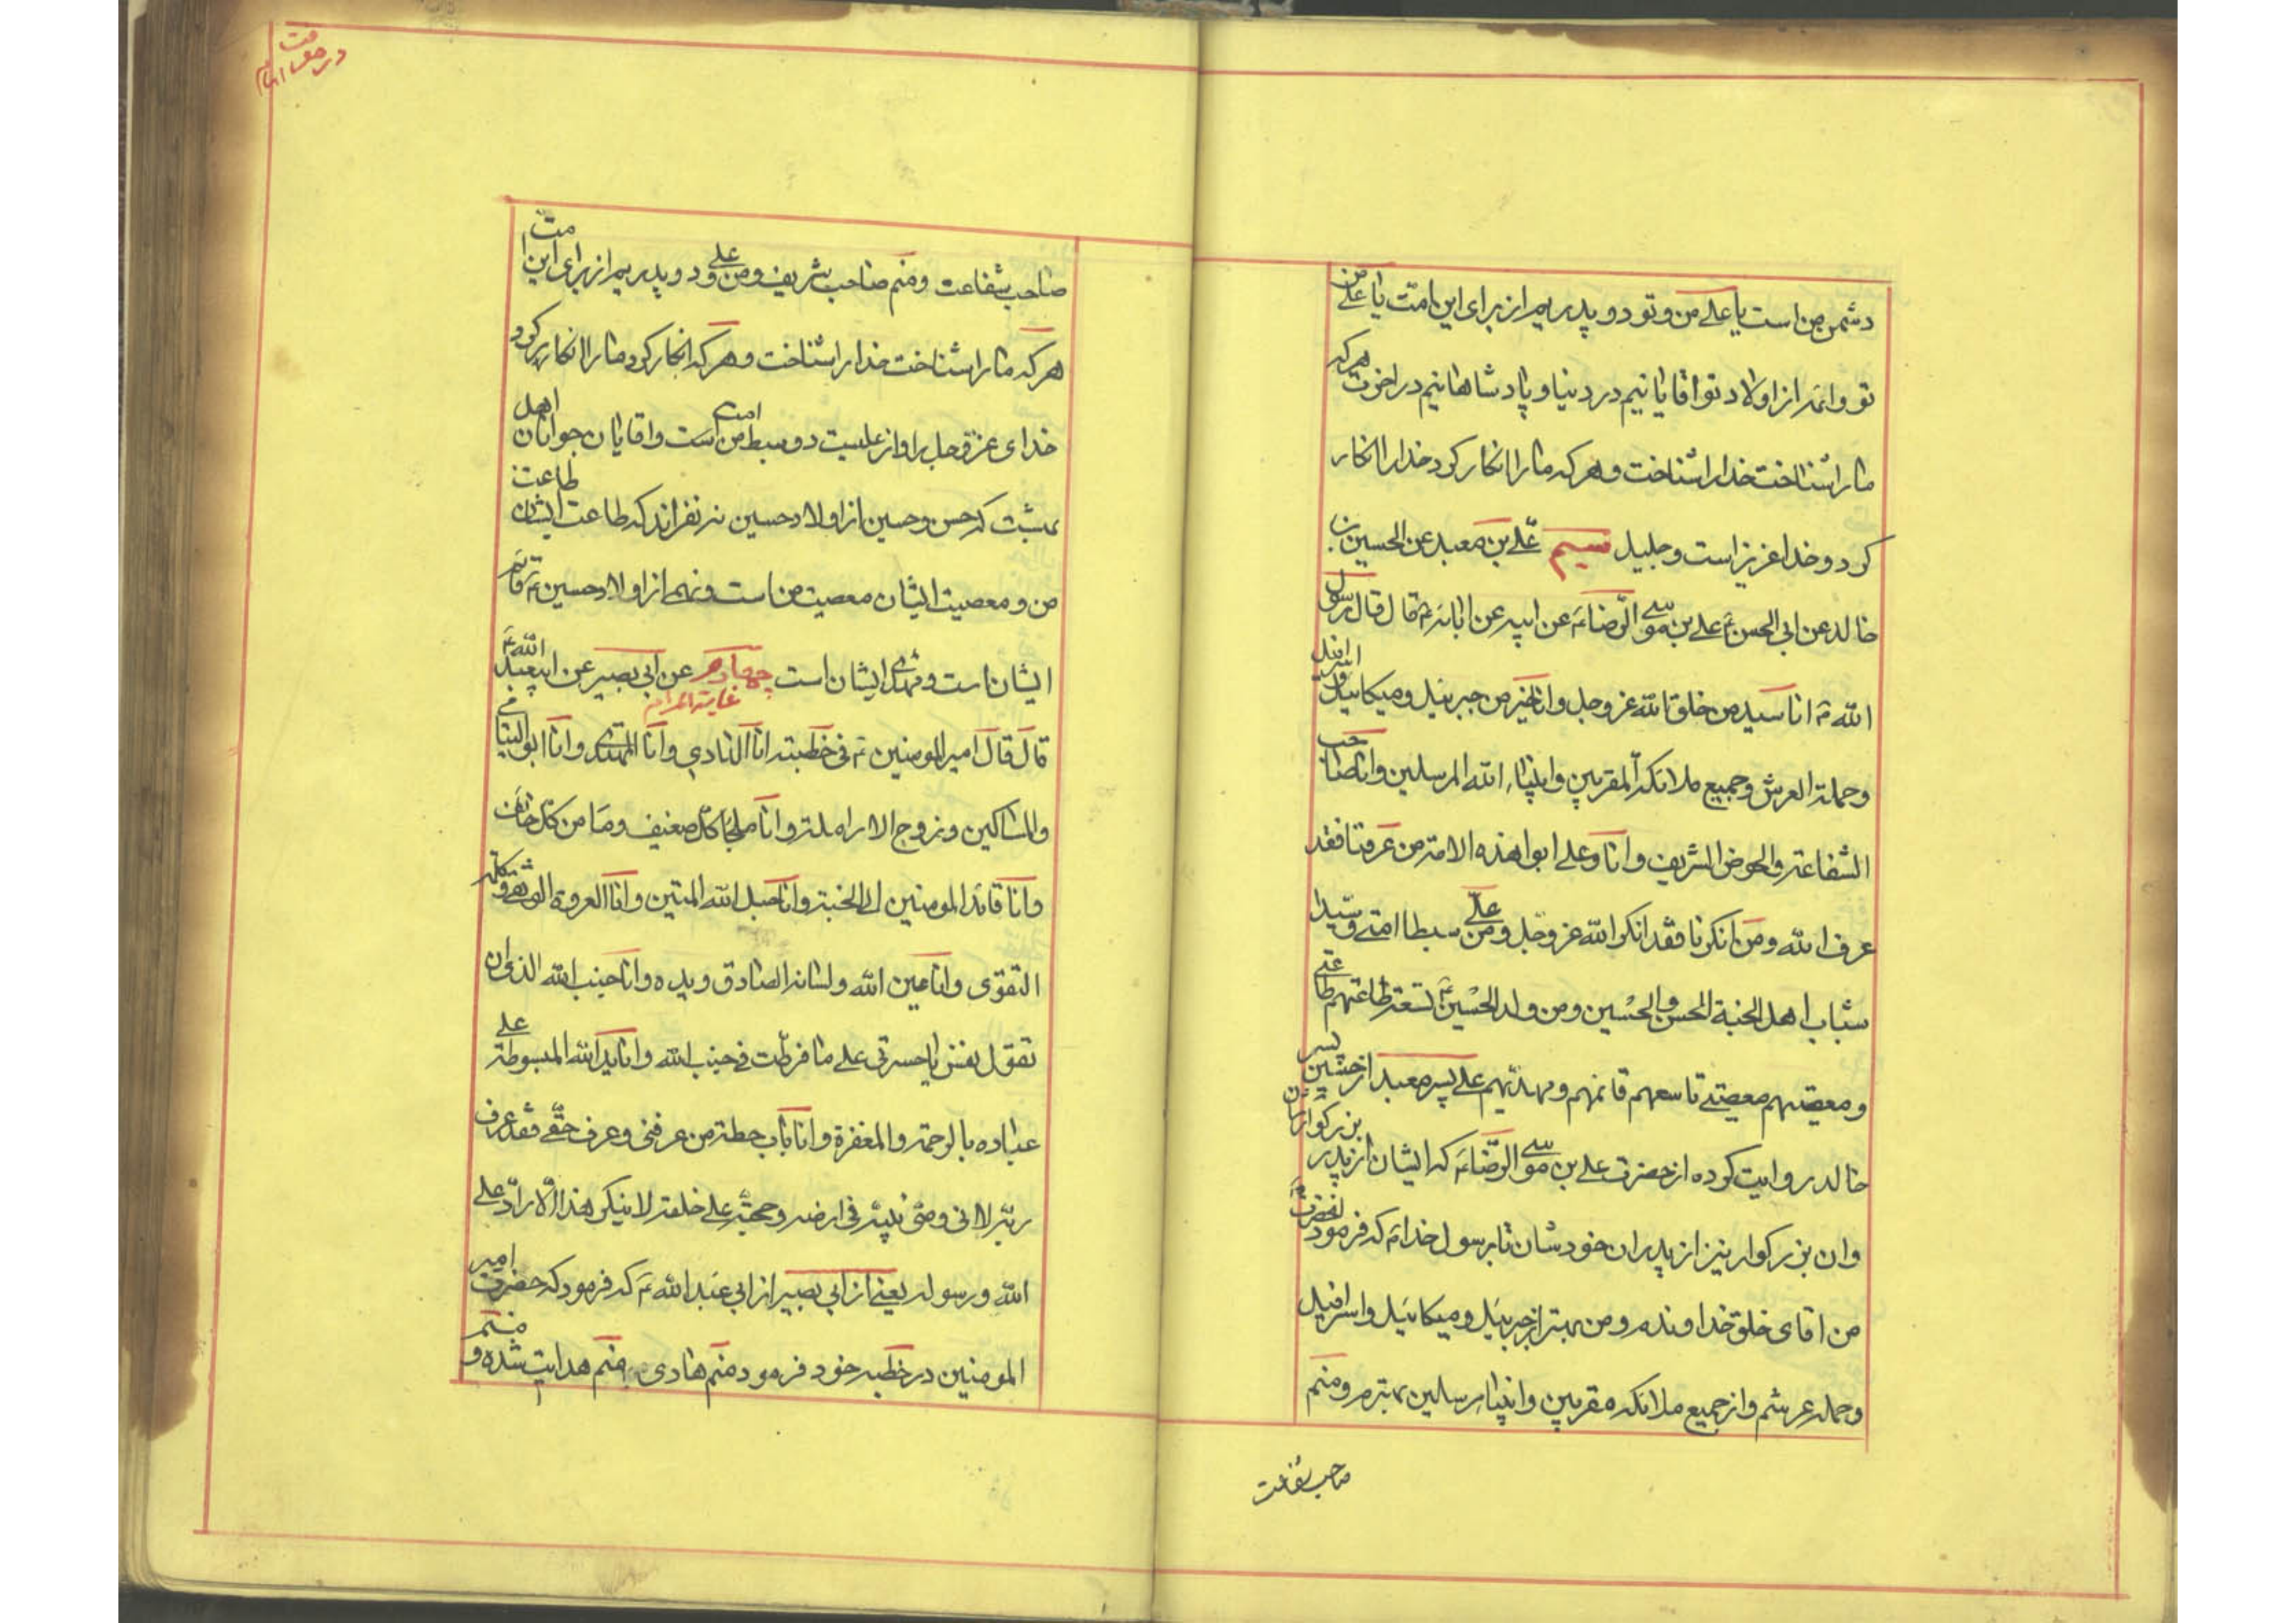 دشمن من است یا علی من و تو دو پدریم از برای این امت یا علی من
تو و ائمه از اولاد تو اقایانیم در دنیا و پادشاهانیم در اخرت هرکه
مارا شناخت خدا را شناخت و هرکه مارا انکار کرد خدا را انکار
کرد و خدا عزیز است و جلیل سیم علی بن معبد عن الحسین بن
خالد عن ابی الحسن علی بن موسی الرضاء عن ابیه عن ابائه ع قال قال رسول
الله ص انا سید من خلق الله عز و جل و انا خیر من جبرئیل و میکائیل و اسرافیل
و حملة العرش و جمیع ملائکة المقربین و انبیاء الله المرسلین و انا صاحب
الشفاعة و الحوض الشریف و انا و علی ابوا هذه الامة من عرفنا فقد
عرف الله و من انکرنا فقد انکر الله عز و جل و من علی سبطا امتی و سیدا
شباب اهل الجنة الحسن و الحسین و من ولد الحسین تسعة طاعتهم طاعتی
و معصیتهم معصیتی تاسعهم قائمهم و مهدیهم علی پسر معبد از حسین پسر
خالد روایت کرده از حضرت علی بن موسی الرضاء که ایشان از پدر بزرکوارشان
و ان بزرکوار نیز از پدران خودشان تا برسول خدا که فرمود انحضرت
من اقای خلق خداوندم و من بهتر از جبرئیل و میکائیل و اسرافیل
و حمله عرشم و از جمیع ملائکه مقربین و انبیاء مرسلین بهترم و منم
صاحب شفاعت
در معرفت امام
صاحب شفاعت و منم صاحب شریف و من و علی دو پدریم از برای این امت
هرکه مارا شناخت خدا را شناخت و هرکه انکار کرد مارا انکار کرد
خدای عز و جل را و از علیست دو سبط من امت است و اقایان جوانان اهل
بهشت که حسن و حسین از اولاد حسین نه نفراند که طاعت ایشان طاعت
من و معصیت ایشان معصیت من است و نهم از اولاد حسین ع قائم
ایشان است و مهدی ایشان است چهارم عن ابی بصیر عن ابیعبد الله ع
غایة المرام
قال قال امیر المومنین ع فی خطبته انا الهادی و انا المهتدی و انا ابو الیتامی
و المساکین و زوج الارامله و انا ملجا کل ضعیف و مامن کل خائف
و انا قائد المومنین الی الجنة و انا حبل الله المتین و انا العروة الوثقی و کلمة
التقوی و انا عین الله و لسانه الصادق و یده و انا جنب الله الذی ان
تقول نفس یا حسرتی علی ما فرطت فی جنب الله و انا ید الله المبسوطة علی
عباده بالرحمة و المغفرة و انا باب حطة من عرفنی و عرف حقی فقد عرف
ربه لانی وصی نبیه فی ارضه و حجته علی خلقه لا ینکر هذا الا راد علی
الله و رسوله یعنی از ابی بصیر از ابی عبد الله ع که فرمود که حضرت امیر
المومنین در خطبه خود فرمود منم هادی منم هدایت شده و منم